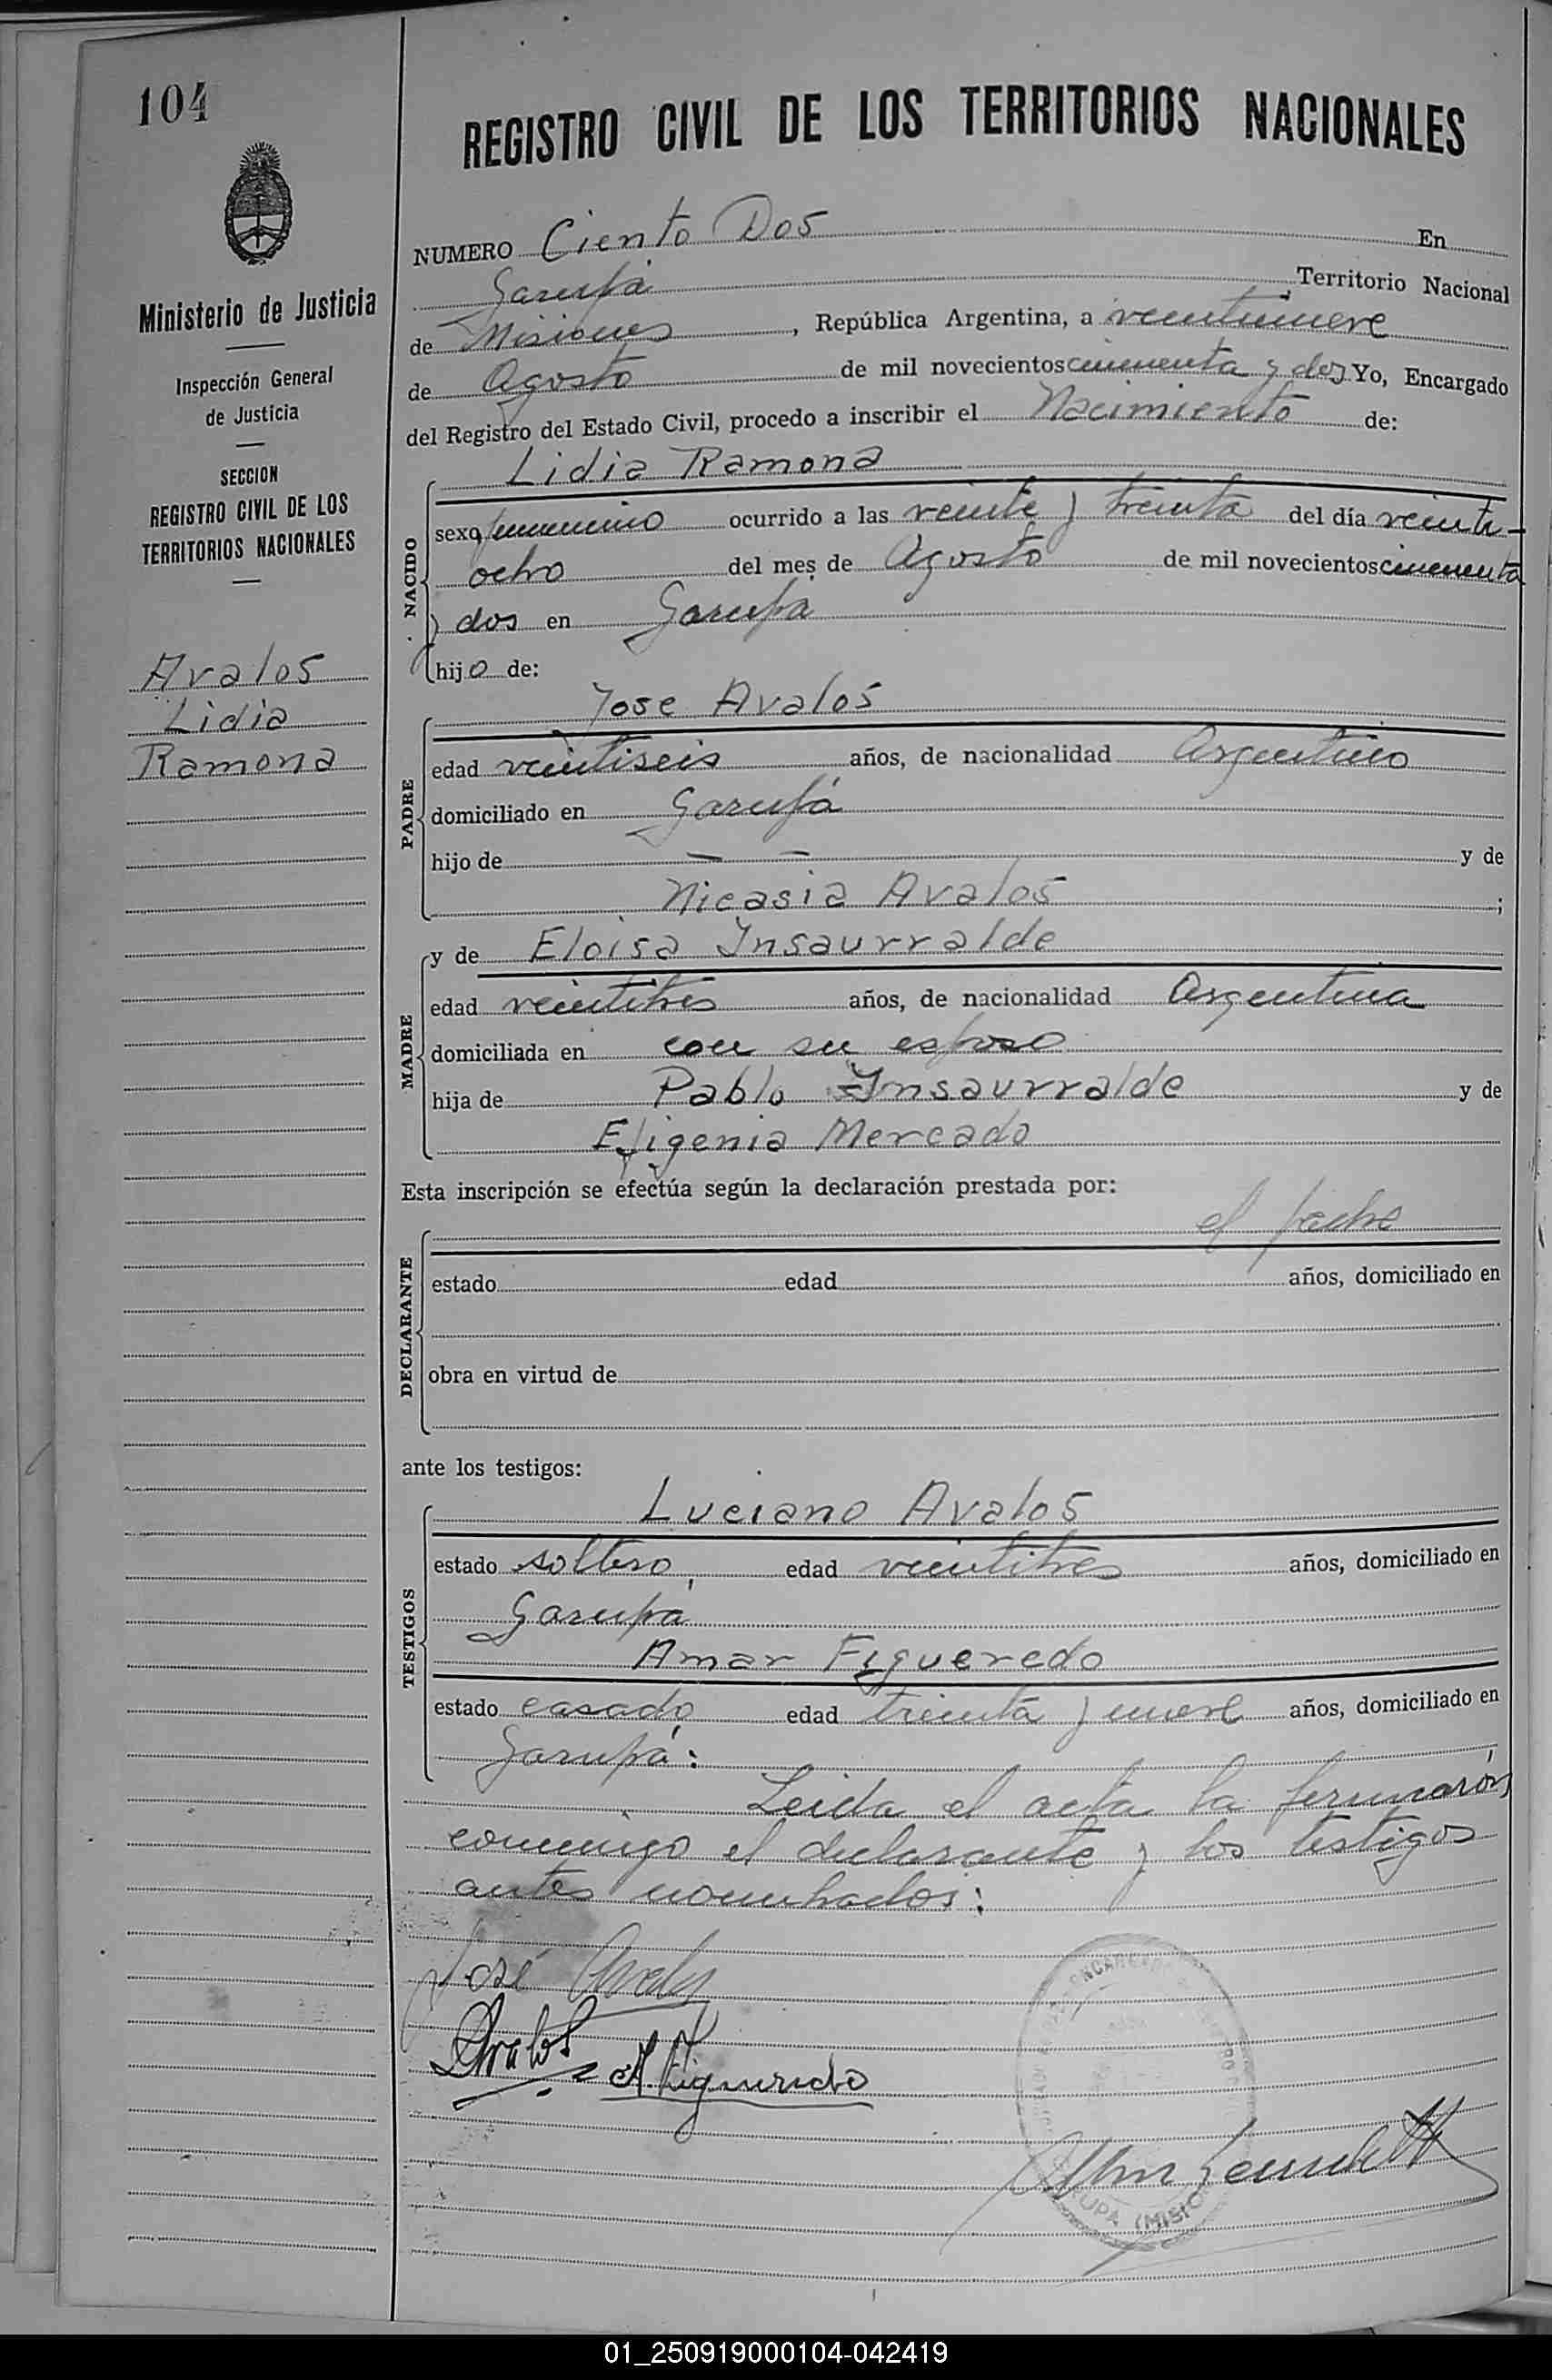 104
REGISTRO CIVIL DE LOS TERRITORIOS NACIONALES
Ministerio de Justicia
Inspección General
de Justicia
SECCION
REGISTRO CIVIL DE LOS
TERRITORIOS NACIONALES
Avalos
Lidia
Ramona
NUMERO Ciento Dos En
Garupá, Territorio Nacional
de Misiones, República Argentina, a veintinueve
de Agosto de mil novecientos cincuenta y dos Yo, Encargado
del Registro del Estado Civil, procedo a inscribir el Nacimiento de:
NACIDO
Lidia Ramona
sexo femenino ocurrido a las veinte y treinta del día veinti-
ocho del mes de Agosto de mil novecientos cincuenta
y dos en Garupá
hijo de:
PADRE
Jose Avalos
edad veintiseis años, de nacionalidad Argentino
domiciliado en Garupá
hijo de — — y de
Nicasia Avalos;
MADRE
y de Eloisa Insaurralde
edad veintitres años, de nacionalidad Argentina
domiciliada en con su esposo
hija de Pablo Insaurralde y de
Efigenia Mercado
Esta inscripción se efectúa según la declaración prestada por:
DECLARANTE
el padre
estado edad años, domiciliado en
obra en virtud de
ante los testigos:
TESTIGOS
Luciano Avalos
estado soltero, edad veintitres años, domiciliado en
Garupá
Amar Figueredo
estado casado, edad treinta y nueve años, domiciliado en
Garupá:
Leida el acta la firmaron
conmigo el declarante y los testigos
antes nombrados:
José Avalos
Avalos
A. Figueredo
01_250919000104-042419